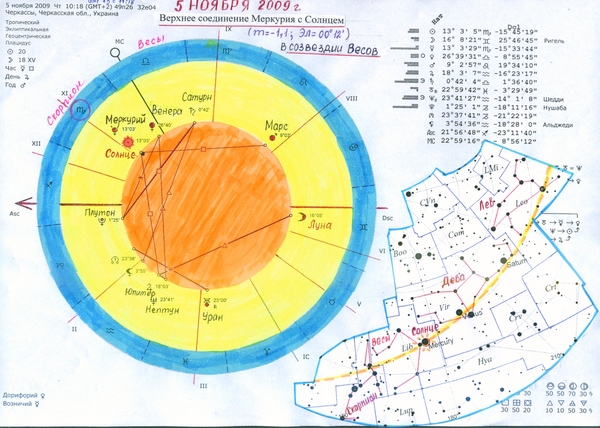 5 ноября 2009 Чт 10:18 (GMT+2) 49n26 32e04
Черкассы, Черкасская обл., Украина
5 НОЯБРЯ 2009г.
Верхнее соединение Меркурия с Солнцем
(m=-1,1; ЭЛ=00°12')
в созвездии Весов
Тропический
Эклиптикальная
Геоцентрическая
Плацидус
20
18 XV
Час
День
Год
MC
IX
Весы
Скорпион
XI
VIII
XII
Сатурн
0°42'
Венера
Меркурий
13°03'
Марс
9°02'
Солнце
13°05'
Asc
Dsc
Плутон
1°25'
Луна
16°03'
23°38'
3°55'
Юпитер
18°03'
Нептун
23°41'
Уран
23°00'
VI
V
II
III
IC
Дорифорий
Возничий
13° 3' 5"
-15°45'19"
16° 8'21"
25°46'45"
Ригель
26°37'45"
-8°55'45"
9° 2'57"
19°34'10"
18° 3' 7"
-16°23'17"
0°42' 4"
1°36'40"
22°59'42"
-3°29'58"
23°41'27"
-14°35'13"
Шедди
1°25' 1"
-18°11'16"
Нушаба
3°54'36"
-18°28' 0"
Альджеди
Asc 21°56'48"
-23°11'40"
MC 22°59'16"
-8°56'12"
LMi
CVn
Лев
Leo
Com
Boo
Saturn
Дева
Vir
Crt
Crv
Весы
Солнце
Lib
Mercury
Hya
Скорпион
Lup
210°
180°
30 50 20